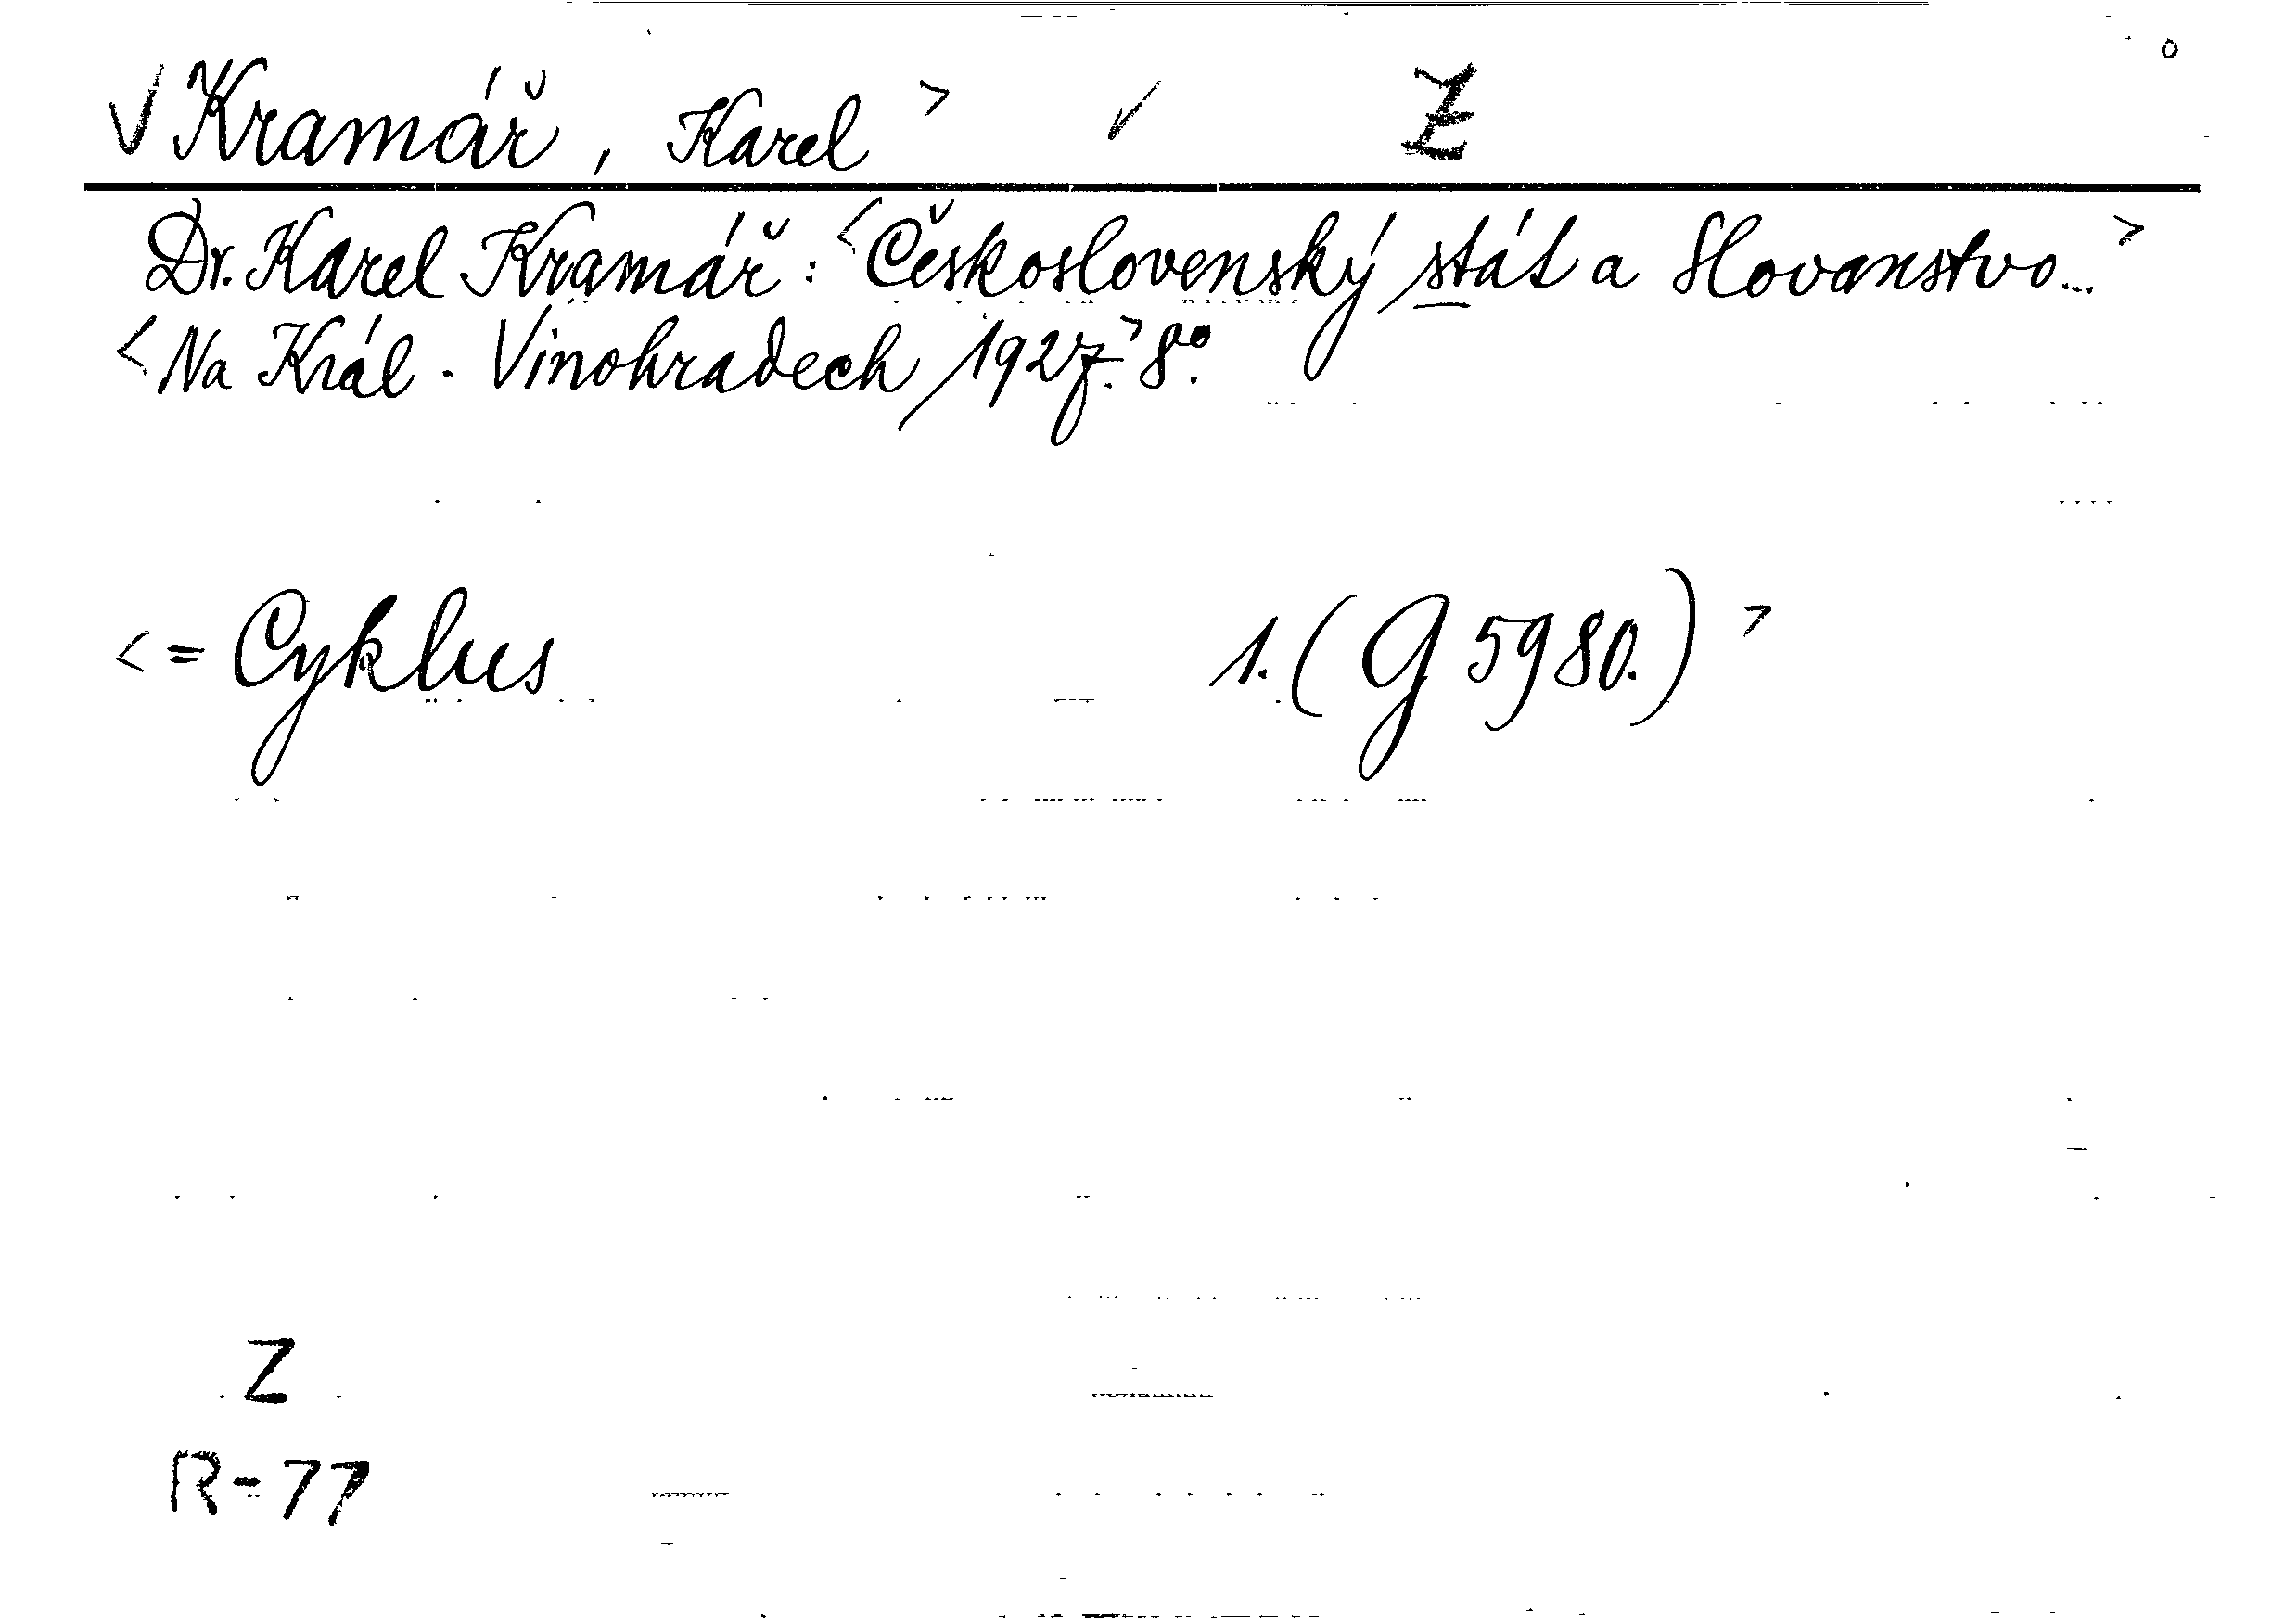 √ Kramář, Karel > ✓ Z
Dr. Karel Kramář: <Československý stát a Slovanstvo...>
<Na Král. Vinohradech, 1927.> 8°.
<= Cyklus 1. (G 5980.)>
Z
R-77